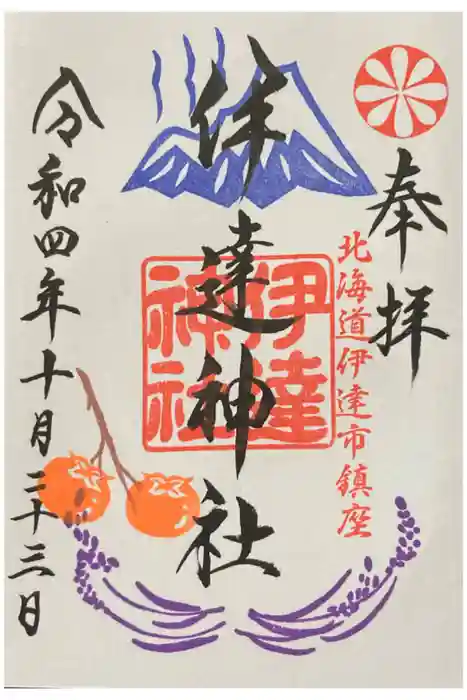 奉拝
北海道伊達市鎮座
伊達神社
伊達
神社
令和四年十月二十三日